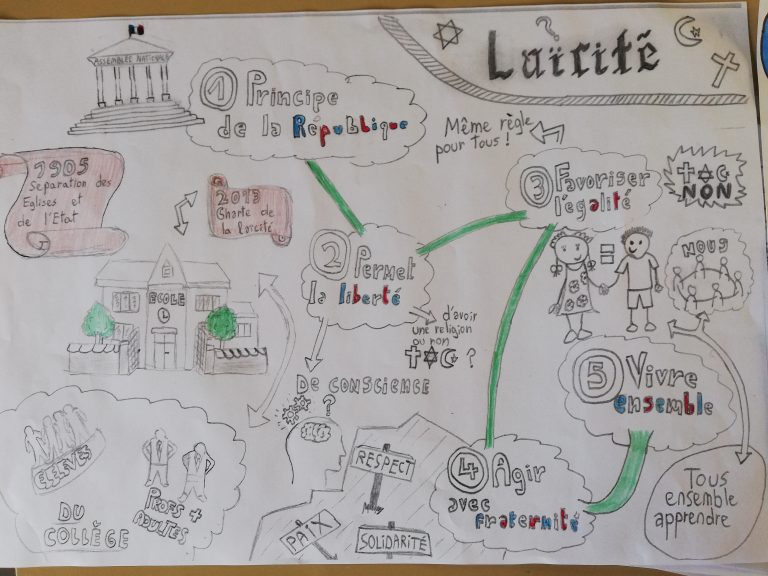 Laïcité
ASSEMBLÉE NATIONALE
1 Principe
de la République
Même règle
pour Tous !
1905
Séparation des
Eglises et
de l'Etat
2013
Charte de
la laïcité
3 Favoriser
l'égalité
NON
2 Permet
la liberté
=
NOUS
ECOLE
d'avoir
une religion
ou non
?
DE CONSCIENCE
?
5 Vivre
ensemble
ELEVES
PROFS +
ADULTES
DU
COLLÈGE
RESPECT
PAIX
SOLIDARITÉ
4 Agir
avec
fraternité
Tous
ensemble
apprendre